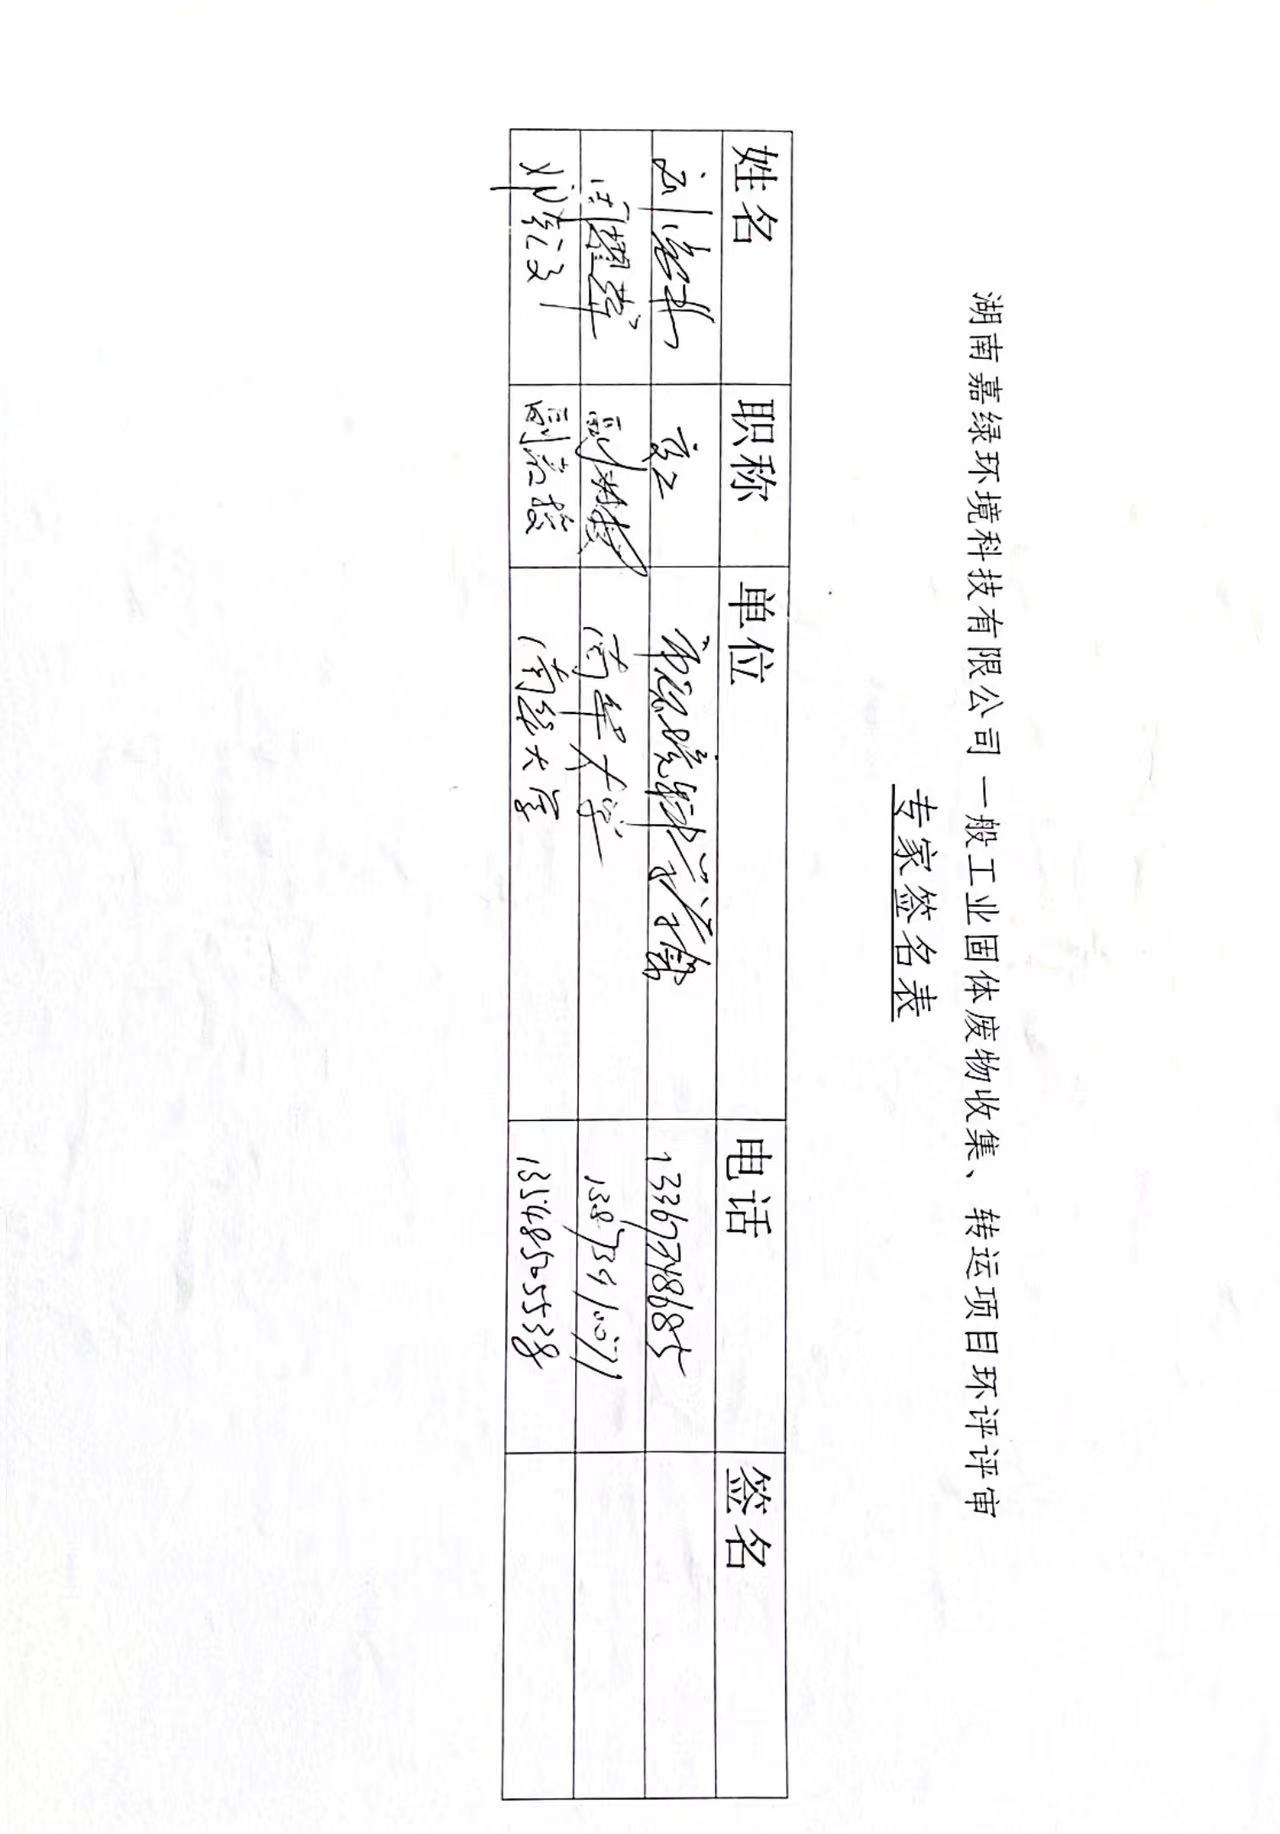 湖南嘉绿环境科技有限公司一般工业固体废物收集、转运项目环评评审
专家签名表
姓名 职称 单位 电话 签名
高工 13367348685
副教授 南华大学
副教授 南华大学 13548525538